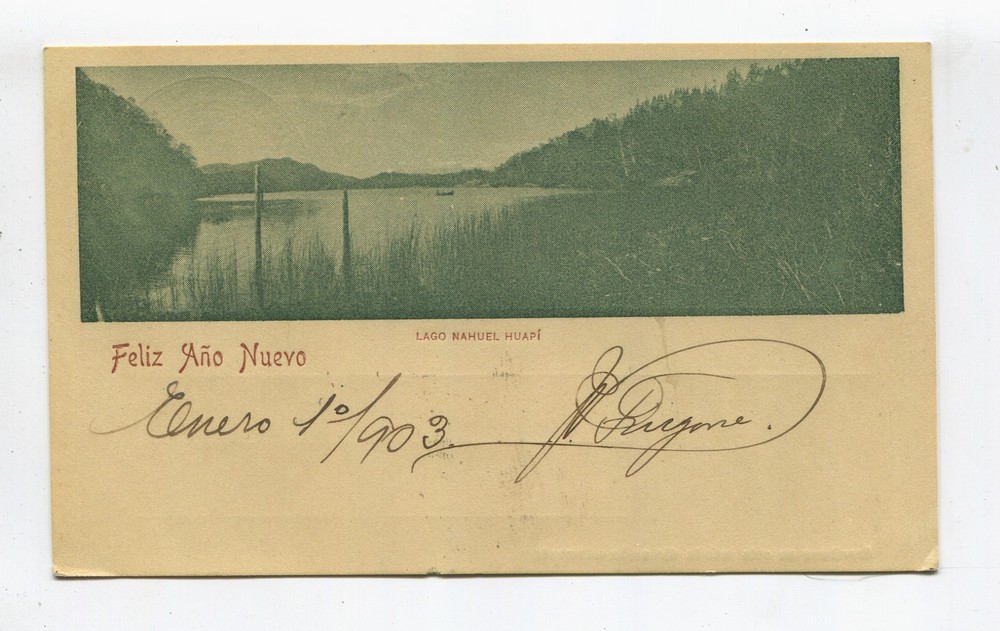 LAGO NAHUEL HUAPÍ
Feliz Año Nuevo
Enero 1º/903.